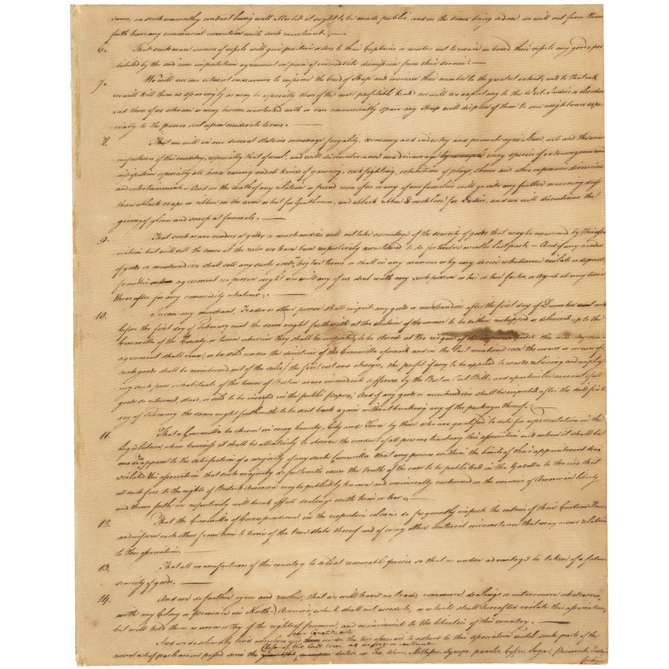 some, on such unworthy conduct being well attested it ought to be made public, and on the same being so done we will not from thence
forth have any commercial connexion with such merchant.
6. That such as are owners of vessels will give positive orders to their Captains or masters not to receive on board their vessels any goods pro
hibited by the said non importation agreement on pain of immediate dismission from their service.
7. We will use our utmost endeavours to improve the breed of Sheep and increase their number to the greatest extent, and to that end
we will kill them as sparingly as may be especially those of the most profitable kind nor will we export any to the West Indies or elsewhere
and those of us who are or may become overstocked with or can conveniently spare any Sheep will dispose of them to our neighbours espe
cially to the poorer sort upon moderate terms.
8. That we will in our several stations encourage frugality, œconomy and industry and promote agriculture arts and the man
ufactures of this country, especially that of wool, and will discountenance and discourage every species of extravagance and
dissipation especially all horse racing and all kinds of gaming, cock fighting, exhibitions of plays, shews and other expensive diversions
and entertainments. And on the death of any relation or friend none of us or any of our families will go into any further mourning dress
than a black crape or ribbon on the arm or hat for Gentlemen, and a black ribbon & necklace for Ladies, and we will discontinue the
giving of gloves and scarfs at funerals.
9. That such as are venders of goods or merchandize will not take advantage of the scarcity of goods that may be occasioned by this asso
ciation but will sell the same at the rates we have been respectively accustomed to do for twelve months last past. And if any vender
of goods or merchandize shall sell any such goods on higher terms or shall in any manner or by any device whatsoever violate or depart
from this agreement no person ought nor will any of us deal with any such person or his or her factor or Agent at any time
thereafter for any commodity whatever.
10. In case any merchant, Trader or other person shall import any goods or merchandize after the first day of December and
before the first day of February next the same ought forthwith at the election of the owner to be either reshipped or delivered up to the
Committee of the County or town wherein they shall be imported to be stored at the risque of the importer until the non importation
agreement shall cease, or be sold under the direction of the Committee aforesaid and in the last mentioned case the owner or owners of
such goods shall be reimbursed out of the sales, the first cost and charges, the profit if any to be applied towards relieving and employ
ing such poor inhabitants of the town of Boston as are immediate sufferers by the Boston Port Bill, and a particular account of all
goods so returned, stored, or sold to be inserted in the public papers; And if any goods or merchandizes shall be imported after the said first
day of February the same ought forthwith to be sent back again without breaking any of the packages thereof.
11. That a Committee be chosen in every County, City and Town by those who are qualified to vote for representatives in the
legislature whose business it shall be attentively to observe the conduct of all persons touching this association and when it shall be
made to appear to the satisfaction of a majority of any such Committee that any person within the limits of their appointment has
violated this association that such majority do forthwith cause the truth of the case to be published in the Gazette to the end that
all such foes to the rights of British America may be publickly known and universally contemned as the enemies of American liberty
and thenceforth we respectively will break off all dealings with him or her.
12. That the Committee of Correspondence in the respective colonies do frequently inspect the entries of their Custom Houses
and inform each other from time to time of the true state thereof and of every other material circumstance that may occur relative
to this association.
13. That all manufactures of this country be sold at reasonable prices so that no undue advantage be taken of a future
scarcity of goods.
14. And we do further agree and resolve, that we will have no trade, commerce, dealings or intercourse whatsoever,
with any Colony or Province in North America which shall not accede to, or which shall hereafter violate this association,
but will hold them as unworthy of the rights of freemen and as inimical to the liberties of this country.
And we do solemnly bind ourselves and our constituents under the ties aforesaid to adhere to this association until such parts of the
several acts of parliament passed since the close of the last war, as impose or continue
duties on Tea, Wine, Molasses, Syrups, paneles, Coffee, Sugar, Piemento, Indigo,
foreign